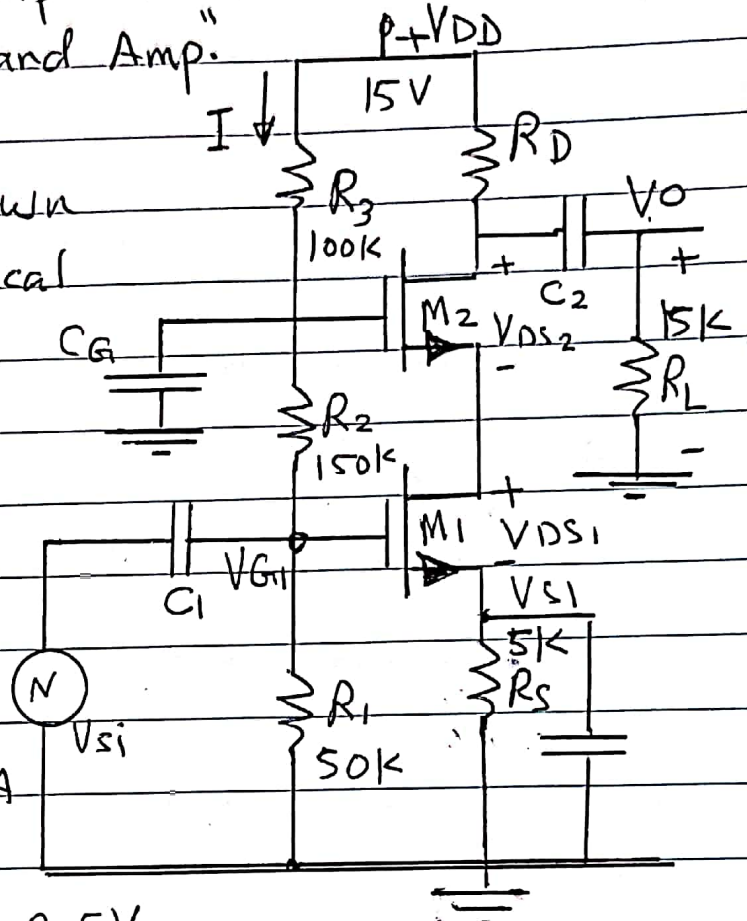 and Amp."
+VDD
15V
I
RD
R3
100K
VO
+
+
C2
M2
VDS2
-
CG
15K
RL
-
R2
150K
+
M1
VDS1
-
VG1
C1
VS1
5K
RS
N
Vsi
R1
50K
A